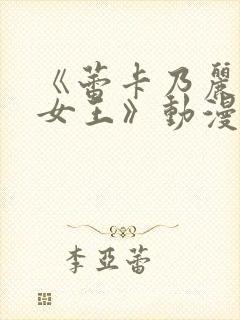 《蕾卡乃麗
女王》動漫
李亞蕾